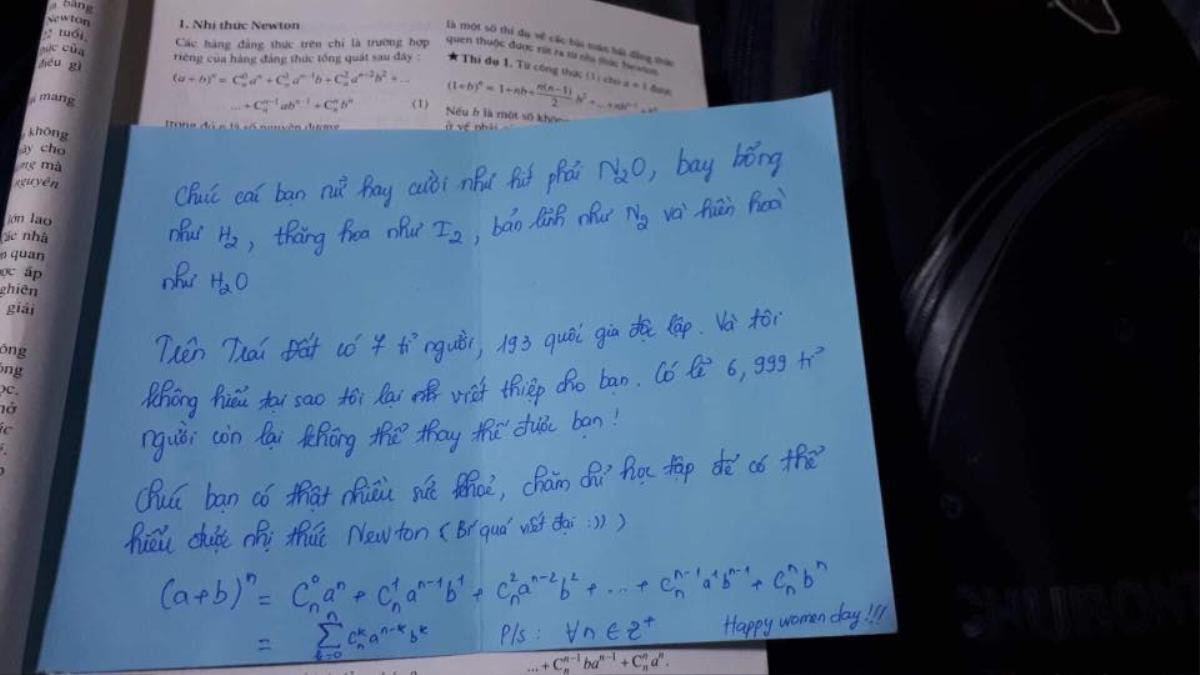 bảng
Newton
tuổi,
của
điều gì
mang
không
này cho
mà
nguyên
lớn lao
Các nhà
quan
áp
nghiên
giải
1. Nhị thức Newton
Các hằng đẳng thức trên chỉ là trường hợp
riêng của hằng đẳng thức tổng quát sau đây :
(a + b)ⁿ = C⁰ₙaⁿ + C¹ₙaⁿ⁻¹b + C²ₙaⁿ⁻²b² + ...
... + Cⁿ⁻¹ₙabⁿ⁻¹ + Cⁿₙbⁿ (1)
trong đó n là số nguyên dương
là một số thí dụ về các bài toán bất đẳng thức
quen thuộc được rút ra từ nhị thức Newton
★ Thí dụ 1. Từ công thức (1) cho a = 1 được
(1+b)ⁿ = 1+nb+n(n−1)/2 b² + ...+nbⁿ⁻¹
Nếu b là một số không
ở vế phải
Chúc cái bạn nữ hay cười như hít phải N₂O, bay bổng
như H₂, thăng hoa như I₂, bản lĩnh như N₂ và hiền hoà
như H₂O
Trên Trái Đất có 7 tỉ người, 193 quốc gia độc lập. Và tôi
không hiểu tại sao tôi lại viết thiệp cho bạn. Có lẽ 6,999 tỉ
người còn lại không thể thay thế được bạn!
Chúc bạn có thật nhiều sức khoẻ, chăm chỉ học tập để có thể
hiểu được nhị thức Newton (Bí quá viết đại :)) )
(a+b)ⁿ = C⁰ₙaⁿ + C¹ₙaⁿ⁻¹b¹ + C²ₙaⁿ⁻²b² + ... + Cⁿ⁻¹ₙa¹bⁿ⁻¹ + Cⁿₙbⁿ
= ⁿ∑ₖ₌₀ Cᵏₙaⁿ⁻ᵏbᵏ P/s: ∀n ∈ Z⁺ Happy women day!!!
... + Cⁿ⁻¹ₙbaⁿ⁻¹ + Cⁿₙaⁿ.